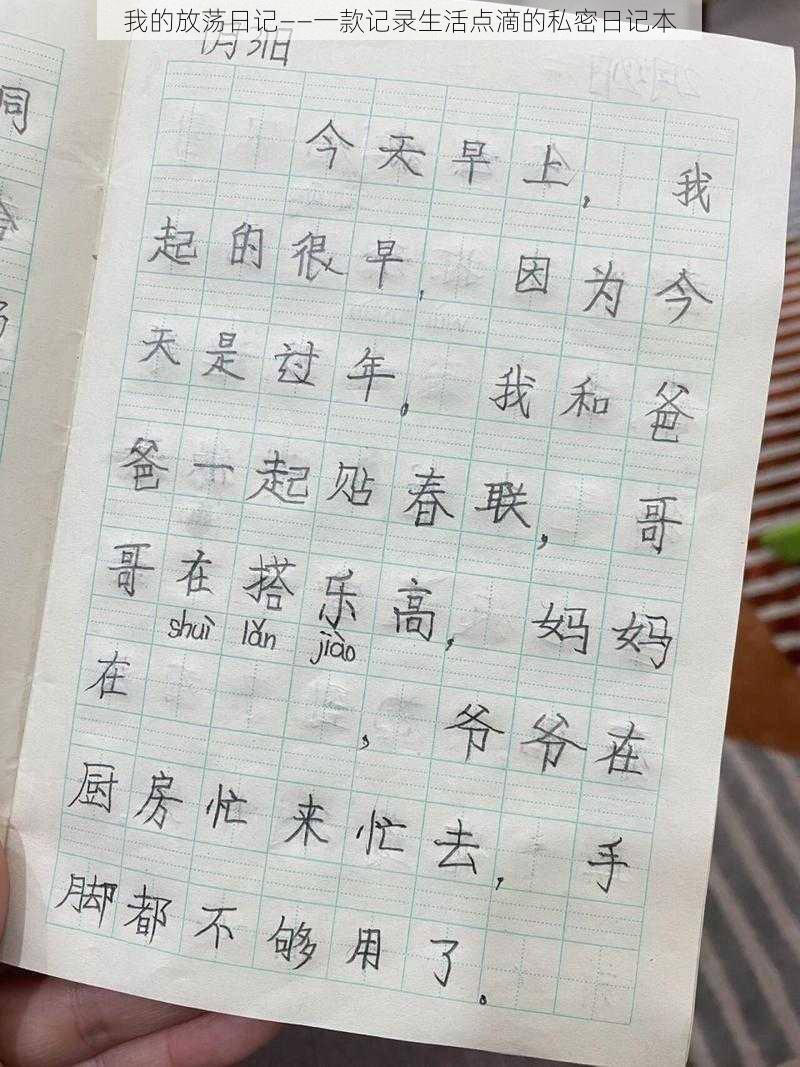 我的放荡日记——一款记录生活点滴的私密日记本
月31日
今天早上，我
起的很早，因为今
天是过年。我和爸
爸一起贴春联，哥
哥在搭乐高，妈妈
shuì lǎn jiào
在，爷爷在
厨房忙来忙去，手
脚都不够用了。
同